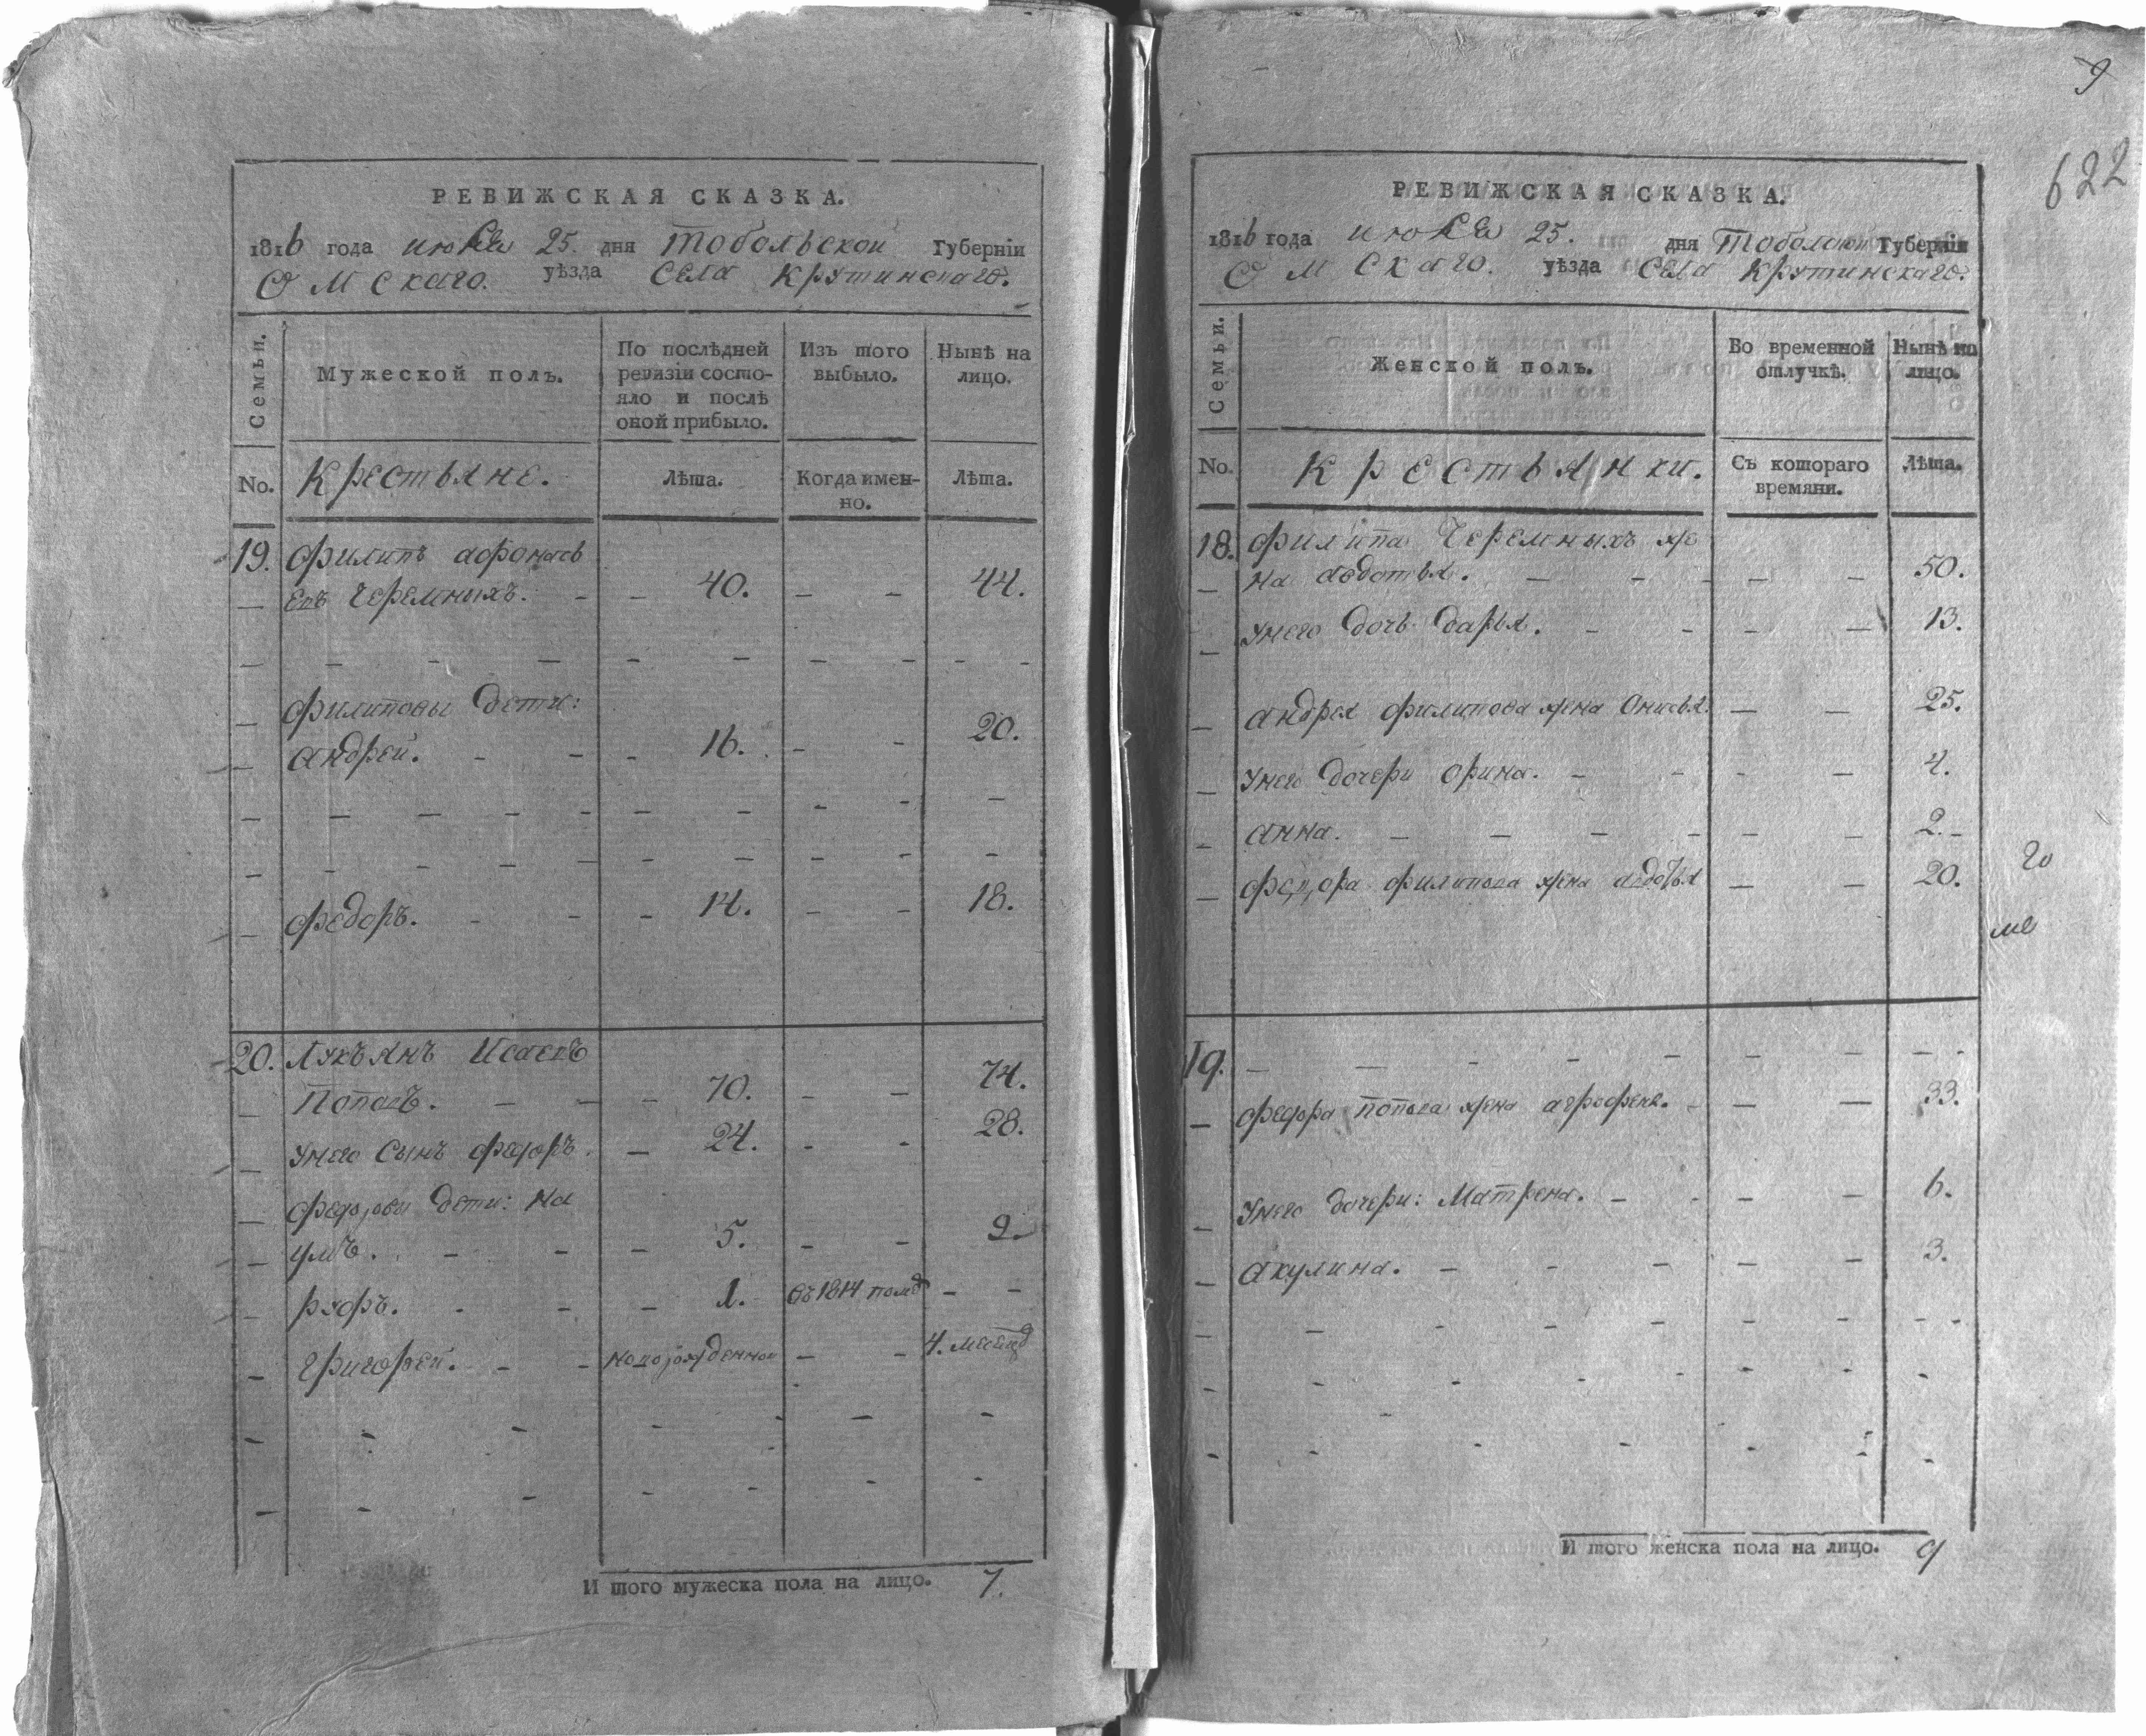 РЕВИЖСКАЯ СКАЗКА.
1816 года июля 25. дня Тобольской Губерніи
Омскаго. уѣзда Села Крутинскаго.
Семьи.
Мужеской полъ.
По послѣдней
ревизіи состо-
яло и послѣ
оной прибыло.
Изъ того
выбыло.
Нынѣ на
лицо.
No. Крестьяне. Лѣта. Когда имен-
но. Лѣта.
19. Филипъ Афонась
евъ Черемныхъ. 40. 44.
Филиповы дети:
Андрей. 16. 20.
Федоръ. 14. 18.
20. Лукъянъ Исаевъ
Поповъ. 70. 74.
Унего сынъ Федоръ. 24. 28.
Федоровы дети: На
умъ. 5. 9.
Руфъ. 1. Въ 1814 помъ
Григорей. новорожденной 4. месецъ
И того мужеска пола на лицо. 7.
9
622
РЕВИЖСКАЯ СКАЗКА.
1816 года июля 25. дня Тоболской Губерніи
Омскаго. уѣзда Села Крутинскаго.
Семьи.
Женской полъ.
Во временной
отлучкѣ.
Нынѣ на
лицо.
No. Крестьянки. Съ котораго
времяни. Лѣта.
18. Филипа Черемныхъ же
на Авдотья. 50.
Унего дочь Дарья. 13.
Андрея Филипова жена Онисья. 25.
Унего дочери Орина. 4.
Анна. 2.
Федора Филипова жена Авдотья 20.
19.
Федора Попова жена Агрофена. 33.
Унего дочери: Матрена. 6.
Акулина. 3.
И того женска пола на лицо. 9